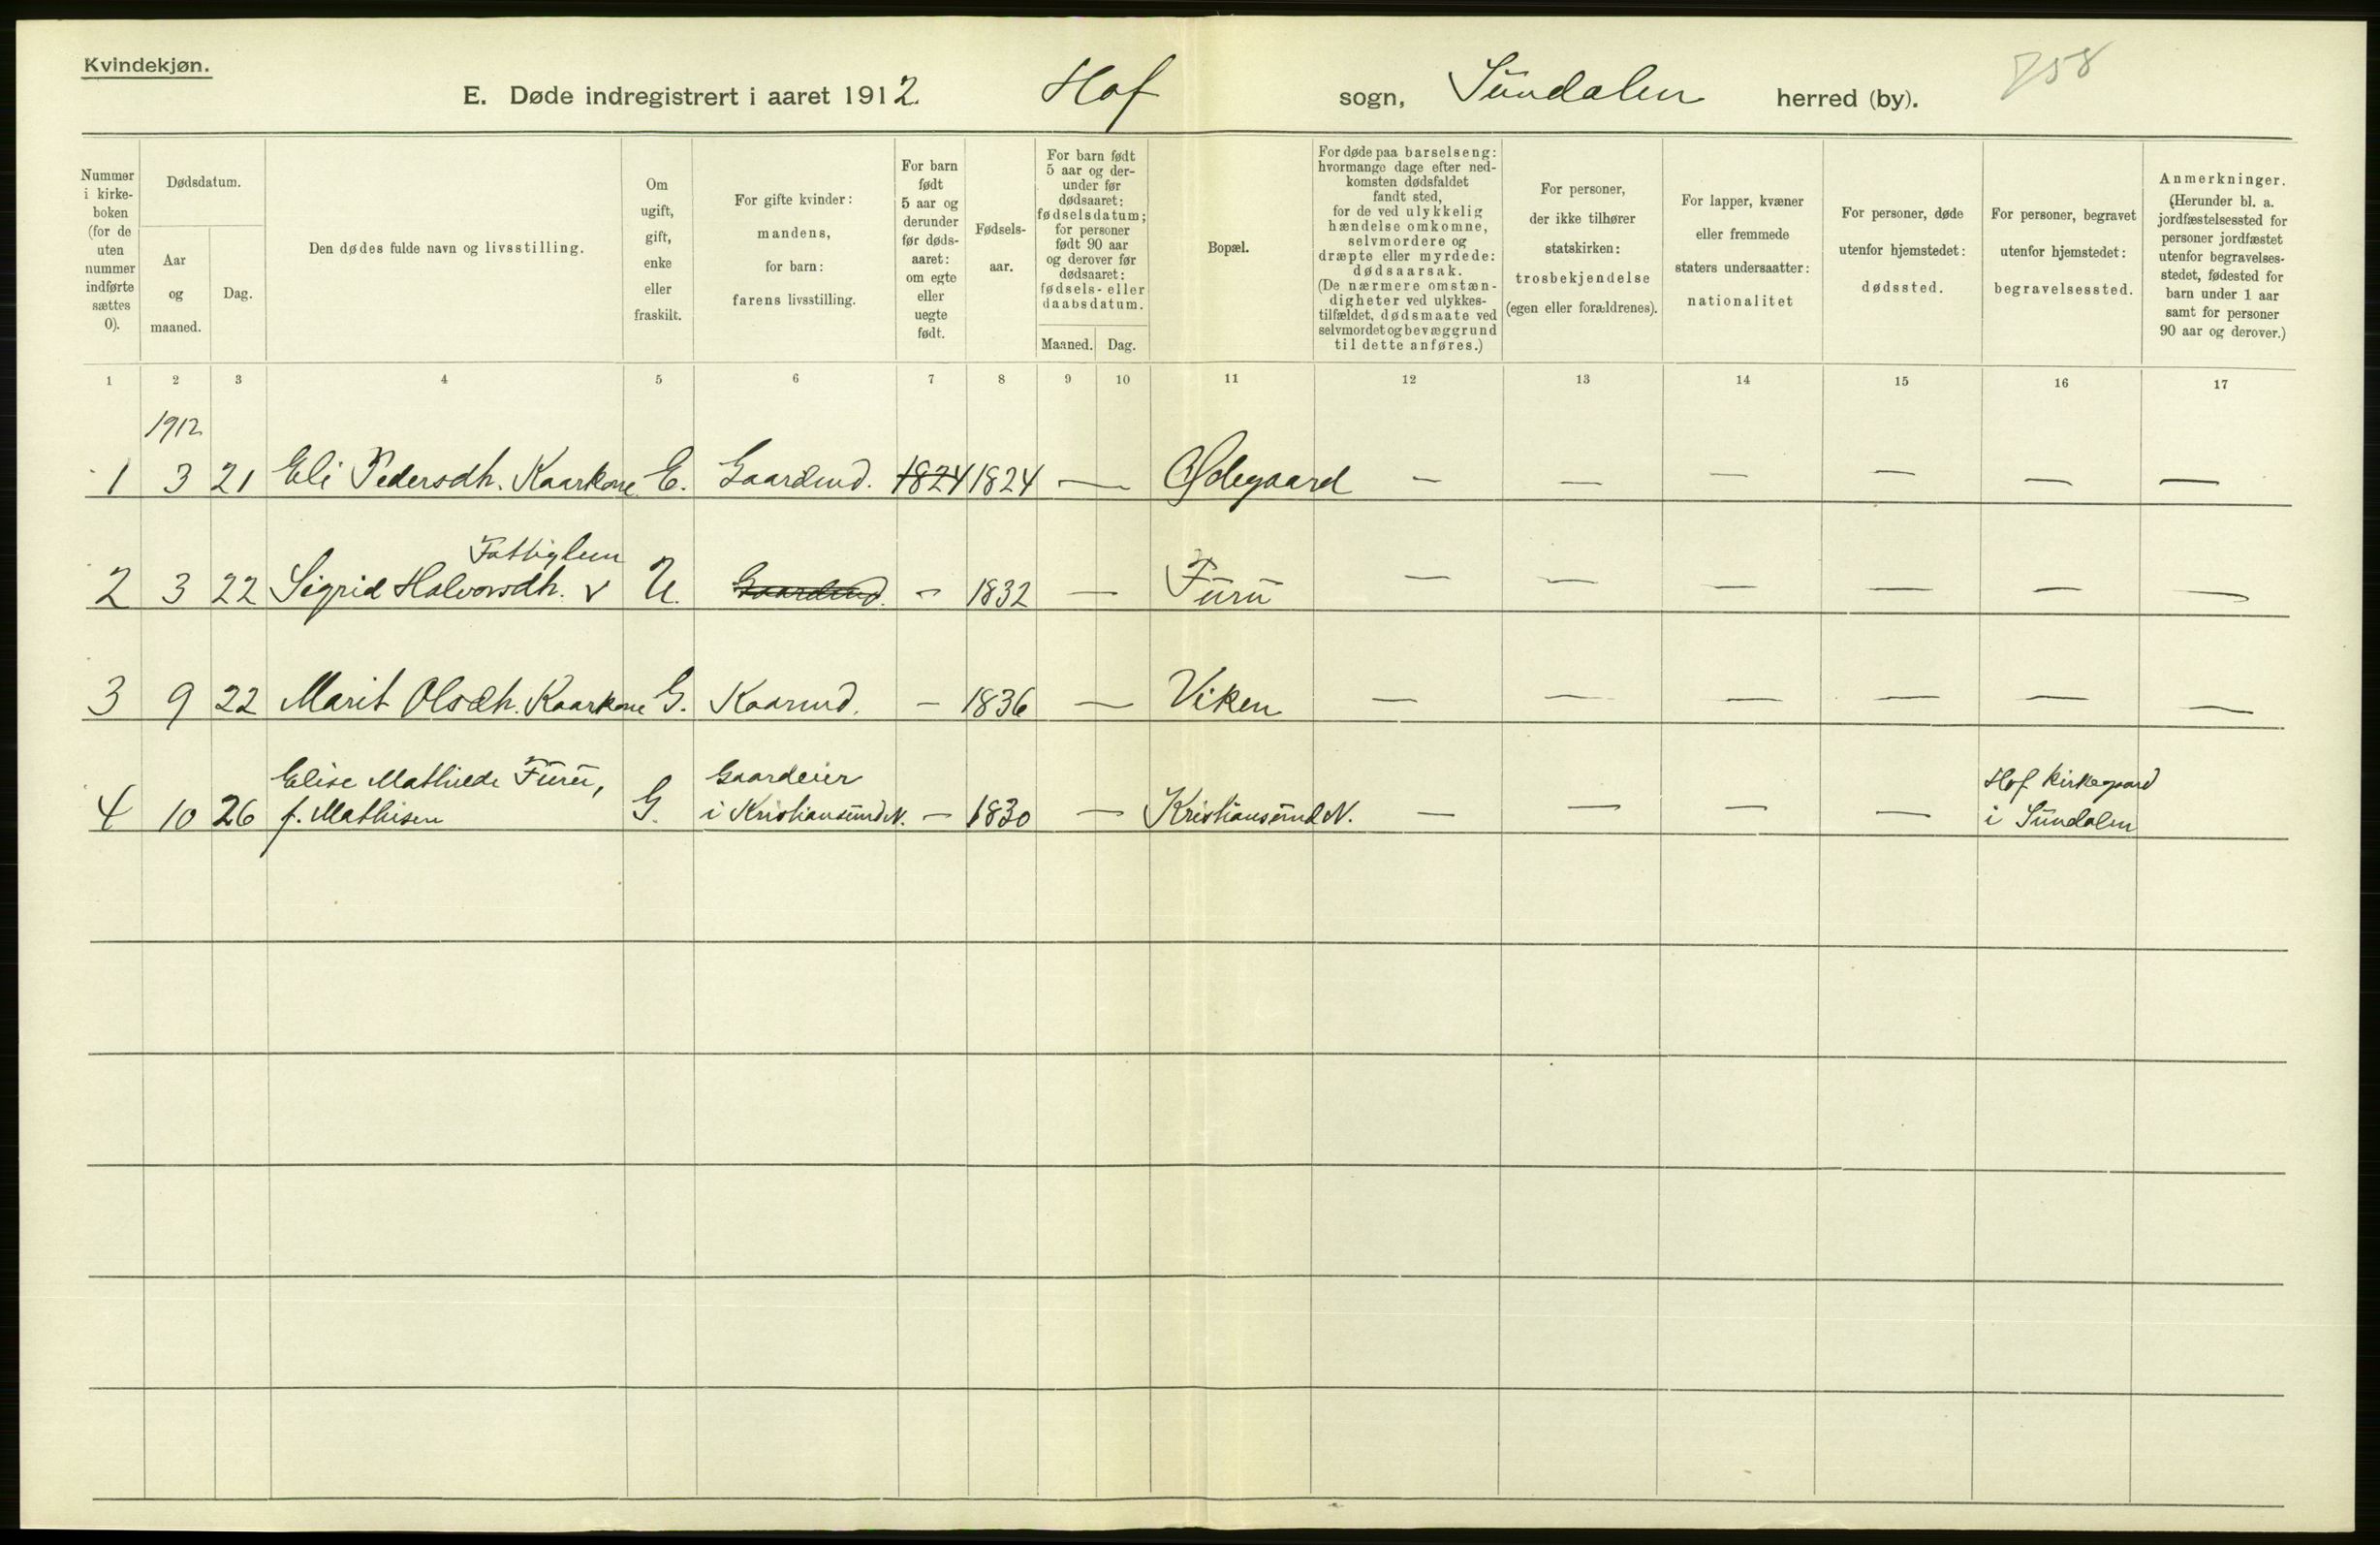 Kvindekjøn.
E. Døde indregistrert i aaret 1912. Hof sogn, Sundalen herred (by). 758
Nummer i kirke-boken (for de uten nummer indførte sættes 0).
Dødsdatum.
Aar og maaned.
Dag.
Den dødes fulde navn og livsstilling.
Om ugift, gift, enke eller fraskilt.
For gifte kvinder: mandens, for barn: farens livsstilling.
For barn født 5 aar og derunder før døds-aaret: om egte eller uegte født.
Fødsels-aar.
For barn født 5 aar og der-under før dødsaaret: fødselsdatum; for personer født 90 aar og derover før dødsaaret: fødsels- eller daabsdatum.
Maaned. Dag.
Bopæl.
For døde paa barselseng: hvormange dage efter ned-komsten dødsfaldet fandt sted, for de ved ulykkelig hændelse omkomne, selvmordere og dræpte eller myrdede: dødsaarsak. (De nærmere omstæn-digheter ved ulykkes-tilfældet, dødsmaate ved selvmordet og bevæggrund til dette anføres.)
For personer, der ikke tilhører statskirken: trosbekjendelse (egen eller forældrenes).
For lapper, kvæner eller fremmede staters undersaatter: nationalitet
For personer, døde utenfor hjemstedet: dødssted.
For personer, begravet utenfor hjemstedet: begravelsessted.
Anmerkninger. (Herunder bl. a. jordfæstelsessted for personer jordfæstet utenfor begravelses-stedet, fødested for barn under 1 aar samt for personer 90 aar og derover.)
1 2 3 4 5 6 7 8 9 10 11 12 13 14 15 16 17
1912
1 3 21 Eli Pedersdh. Kaarkone E. Gaardmd. 1824 1824 — Ødegaard — — — — — —
Fattiglem
2 3 22 Sigrid Halvorsdh. v U. Gaardmd. — 1832 — Furu — — — — — —
3 9 22 Marit Olsdh. Kaarkone G. Kaarmd. — 1836 — Viken — — — — — —
Elise Mathilde Furu, Gaardeier Hof Kirkegaard
4 10 26 f. Mathisen G. i Kristiansund N. — 1830 — Kristiansund N. — — — — i Sundalen